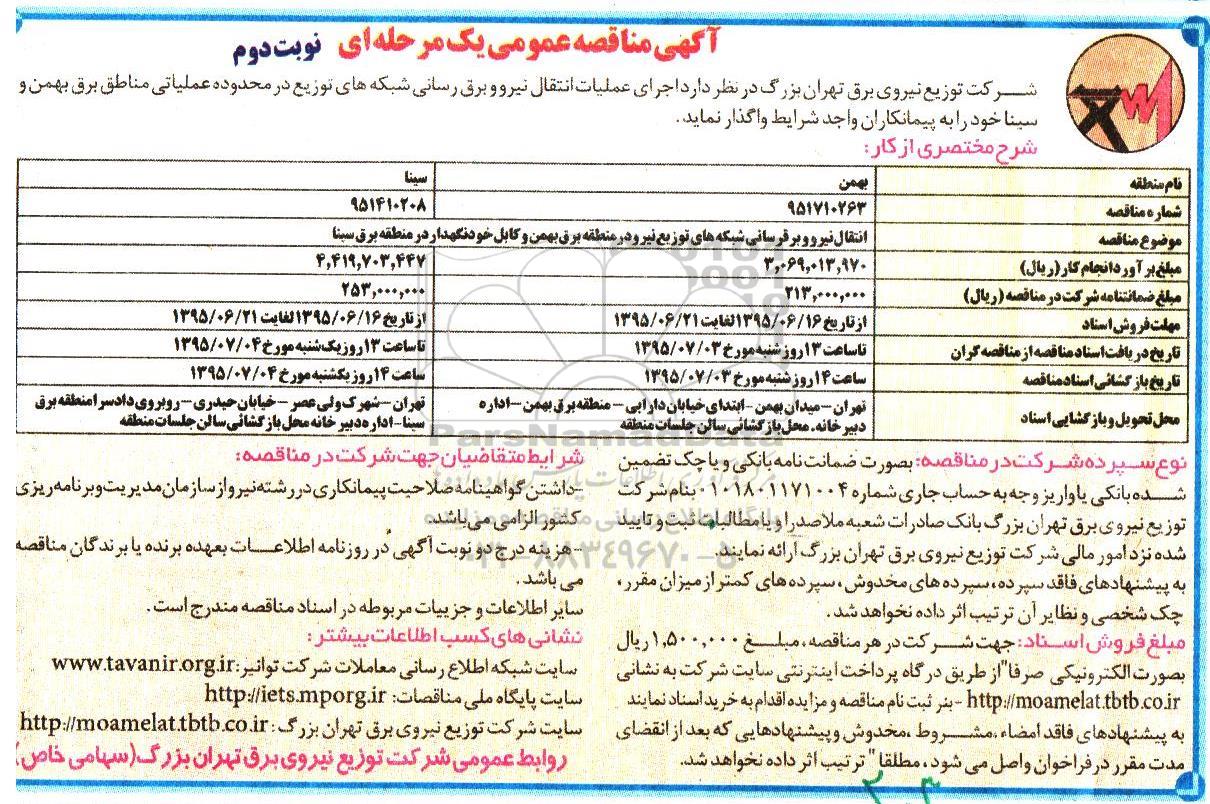 آگهی مناقصه عمومی یک مرحله‌ای نوبت دوم
شرکت توزیع نیروی برق تهران بزرگ در نظر دارد اجرای عملیات انتقال نیرو و برق رسانی شبکه های توزیع در محدوده عملیاتی مناطق برق بهمن و
سینا خود را به پیمانکاران واجد شرایط واگذار نماید.
شرح مختصری از کار:
نام منطقه بهمن سینا
شماره مناقصه ۹۵۱۷۱۰۲۶۳ ۹۵۱۴۱۰۲۰۸
موضوع مناقصه انتقال نیرو و برقرسانی شبکه های توزیع نیرو در منطقه برق بهمن و کابل خودنگهدار در منطقه برق سینا
مبلغ برآورد انجام کار (ریال) ۳,۰۶۹,۰۱۳,۹۷۰ ۴,۴۱۹,۷۰۳,۴۴۷
مبلغ ضمانتنامه شرکت در مناقصه (ریال) ۲۱۳,۰۰۰,۰۰۰ ۲۵۳,۰۰۰,۰۰۰
مهلت فروش اسناد از تاریخ ۱۳۹۵/۰۶/۱۶ لغایت ۱۳۹۵/۰۶/۲۱ از تاریخ ۱۳۹۵/۰۶/۱۶ لغایت ۱۳۹۵/۰۶/۲۱
تاریخ دریافت اسناد مناقصه از مناقصه گران تا ساعت ۱۳ روز شنبه مورخ ۱۳۹۵/۰۷/۰۳ تا ساعت ۱۳ روز یک شنبه مورخ ۱۳۹۵/۰۷/۰۴
تاریخ بازگشائی اسناد مناقصه ساعت ۱۴ روز شنبه مورخ ۱۳۹۵/۰۷/۰۳ ساعت ۱۴ روز یکشنبه مورخ ۱۳۹۵/۰۷/۰۴
محل تحویل و بازگشایی اسناد تهران – میدان بهمن - ابتدای خیابان دارابی – منطقه برق بهمن – اداره
دبیرخانه. محل بازگشائی سالن جلسات منطقه
تهران – شهرک ولی عصر – خیابان حیدری – روبروی دادسرا منطقه برق
سینا - اداره دبیرخانه محل بازگشائی سالن جلسات منطقه
نوع سپرده شرکت در مناقصه: بصورت ضمانت نامه بانکی و یا چک تضمین
شده بانکی یا واریز وجه به حساب جاری شماره ۰۱۰۱۸۰۱۱۷۱۰۰۴ بنام شرکت
توزیع نیروی برق تهران بزرگ بانک صادرات شعبه ملاصدرا و یا مطالبات ثبت و تایید
شده نزد امور مالی شرکت توزیع نیروی برق تهران بزرگ ارائه نمایند.
به پیشنهادهای فاقد سپرده، سپرده های مخدوش، سپرده های کمتر از میزان مقرر،
چک شخصی و نظایر آن ترتیب اثر داده نخواهد شد.
مبلغ فروش اسناد: جهت شرکت در هر مناقصه، مبلغ ۱,۵۰۰,۰۰۰ ریال
بصورت الکترونیکی صرفا" از طریق درگاه پرداخت اینترنتی سایت شرکت به نشانی
http://moamelat.tbtb.co.ir - بنر ثبت نام مناقصه و مزایده اقدام به خرید اسناد نمایند
به پیشنهادهای فاقد امضاء، مشروط، مخدوش و پیشنهادهایی که بعد از انقضای
مدت مقرر در فراخوان واصل می شود، مطلقا" ترتیب اثر داده نخواهد شد.
شرایط متقاضیان جهت شرکت در مناقصه:
-داشتن گواهینامه صلاحیت پیمانکاری در رشته نیرو از سازمان مدیریت و برنامه ریزی
کشور الزامی می باشد.
-هزینه درج دو نوبت آگهی در روزنامه اطلاعات بعهده برنده یا برندگان مناقصه
می باشد.
سایر اطلاعات و جزییات مربوطه در اسناد مناقصه مندرج است.
نشانی های کسب اطلاعات بیشتر:
سایت شبکه اطلاع رسانی معاملات شرکت توانیر: www.tavanir.org.ir
سایت پایگاه ملی مناقصات: http://iets.mporg.ir
سایت شرکت توزیع نیروی برق تهران بزرگ: http://moamelat.tbtb.co.ir
روابط عمومی شرکت توزیع نیروی برق تهران بزرگ (سهامی خاص)
ParsNamadData
۰۲۱-۸۸۳۴۹۶۷۰-۵